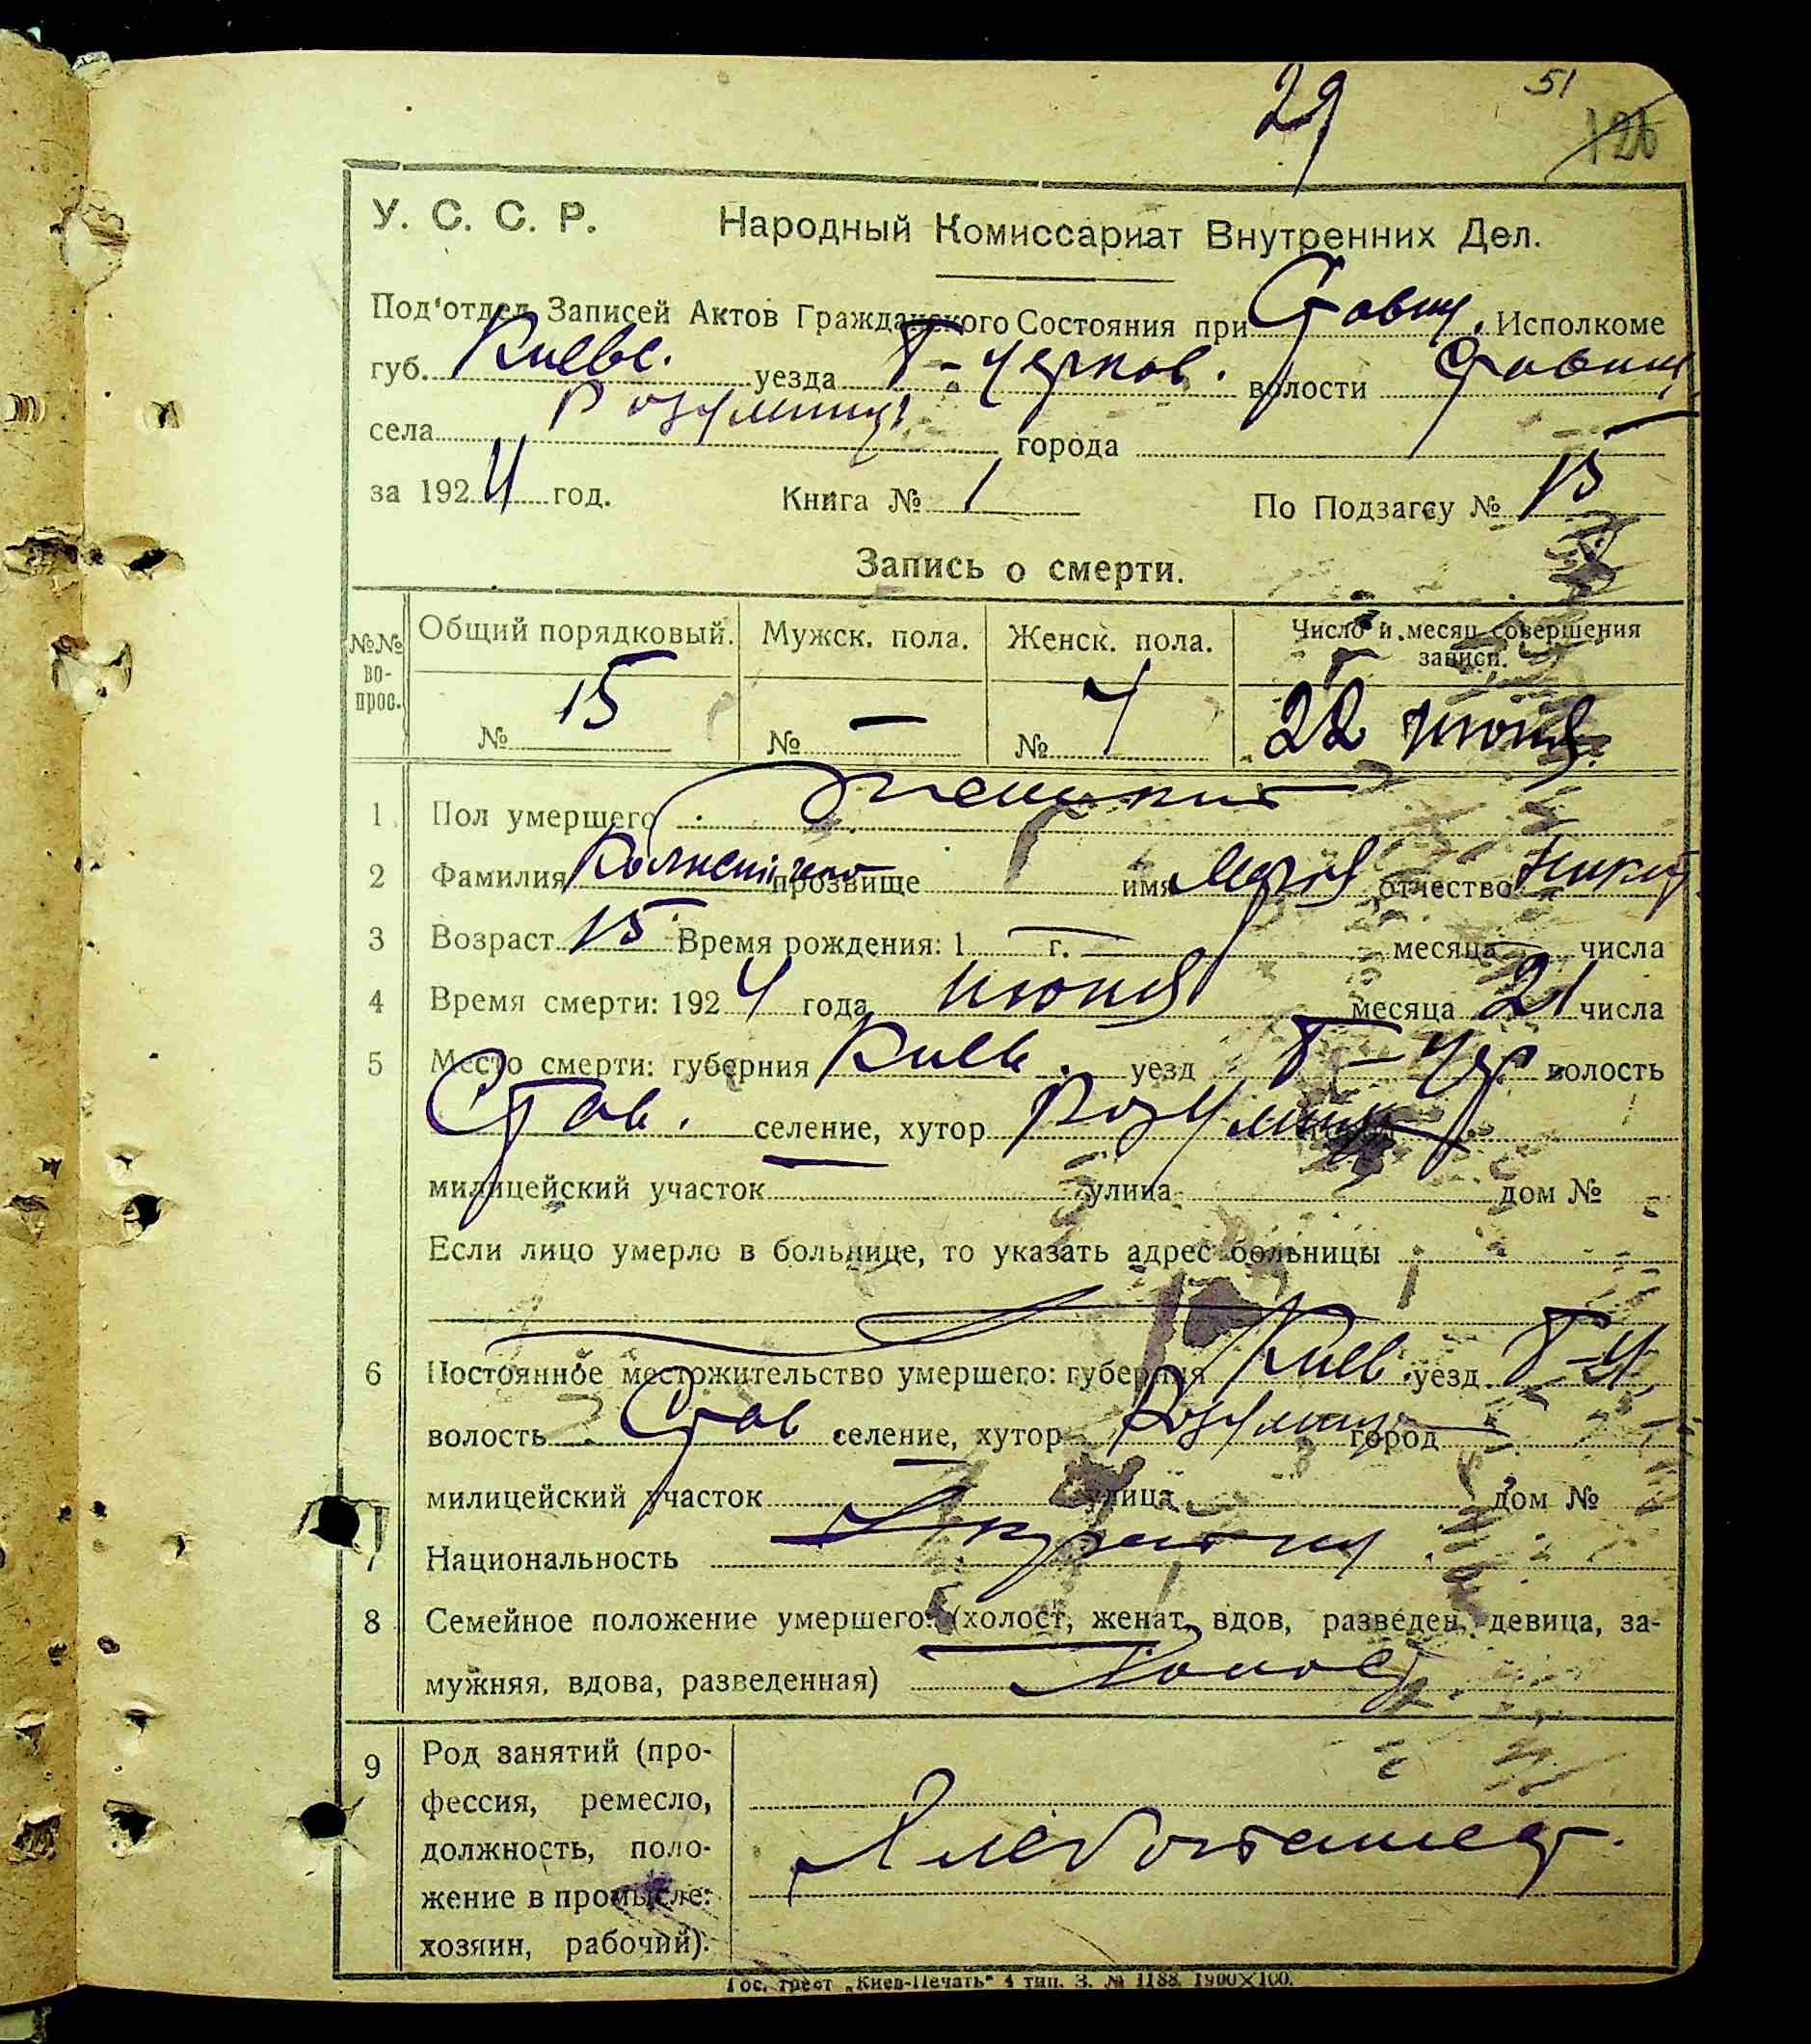 29 51
126
У. С. С. Р. Народный Комиссариат Внутренних Дел.
Под'отдел Записей Актов Гражданского Состояния при Ставищ. Исполкоме
губ. Киевс. уезда Б-Церков. волости Ставищ
села Розумниця города
за 1924 год. Книга № 1 По Подзагсу № 15
Запись о смерти.
№№ во-прос. Общий порядковый. Мужск. пола. Женск. пола. Число и месяц совершения записи.
№ 15 № — № 7 22 июня.
1 Пол умершего женский
2 Фамилия прозвище имя Мария отчество Никит
3 Возраст 15 Время рождения: 1 — г. — месяца — числа
4 Время смерти: 1924 года июня месяца 21 числа
5 Место смерти: губерния Киев. уезд Б-Цер волость
Став. селение, хутор Розумниц
милицейский участок улица дом №
Если лицо умерло в больнице, то указать адрес больницы
6 Постоянное местожительство умершего: губерния Киев. уезд Б-Ц.
волость Став селение, хутор Розумниц город
милицейский участок улица дом №
7 Национальность
8 Семейное положение умершего: (холост, женат, вдов, разведен, девица, за-
мужняя, вдова, разведенная) Холост
9 Род занятий (про-
фессия, ремесло,
должность, поло-
жение в промысле:
хозяин, рабочий).
Хлебопашец.
Гос. трест „Киев-Печать" 4 тип. З. № 1188. 1900×100.